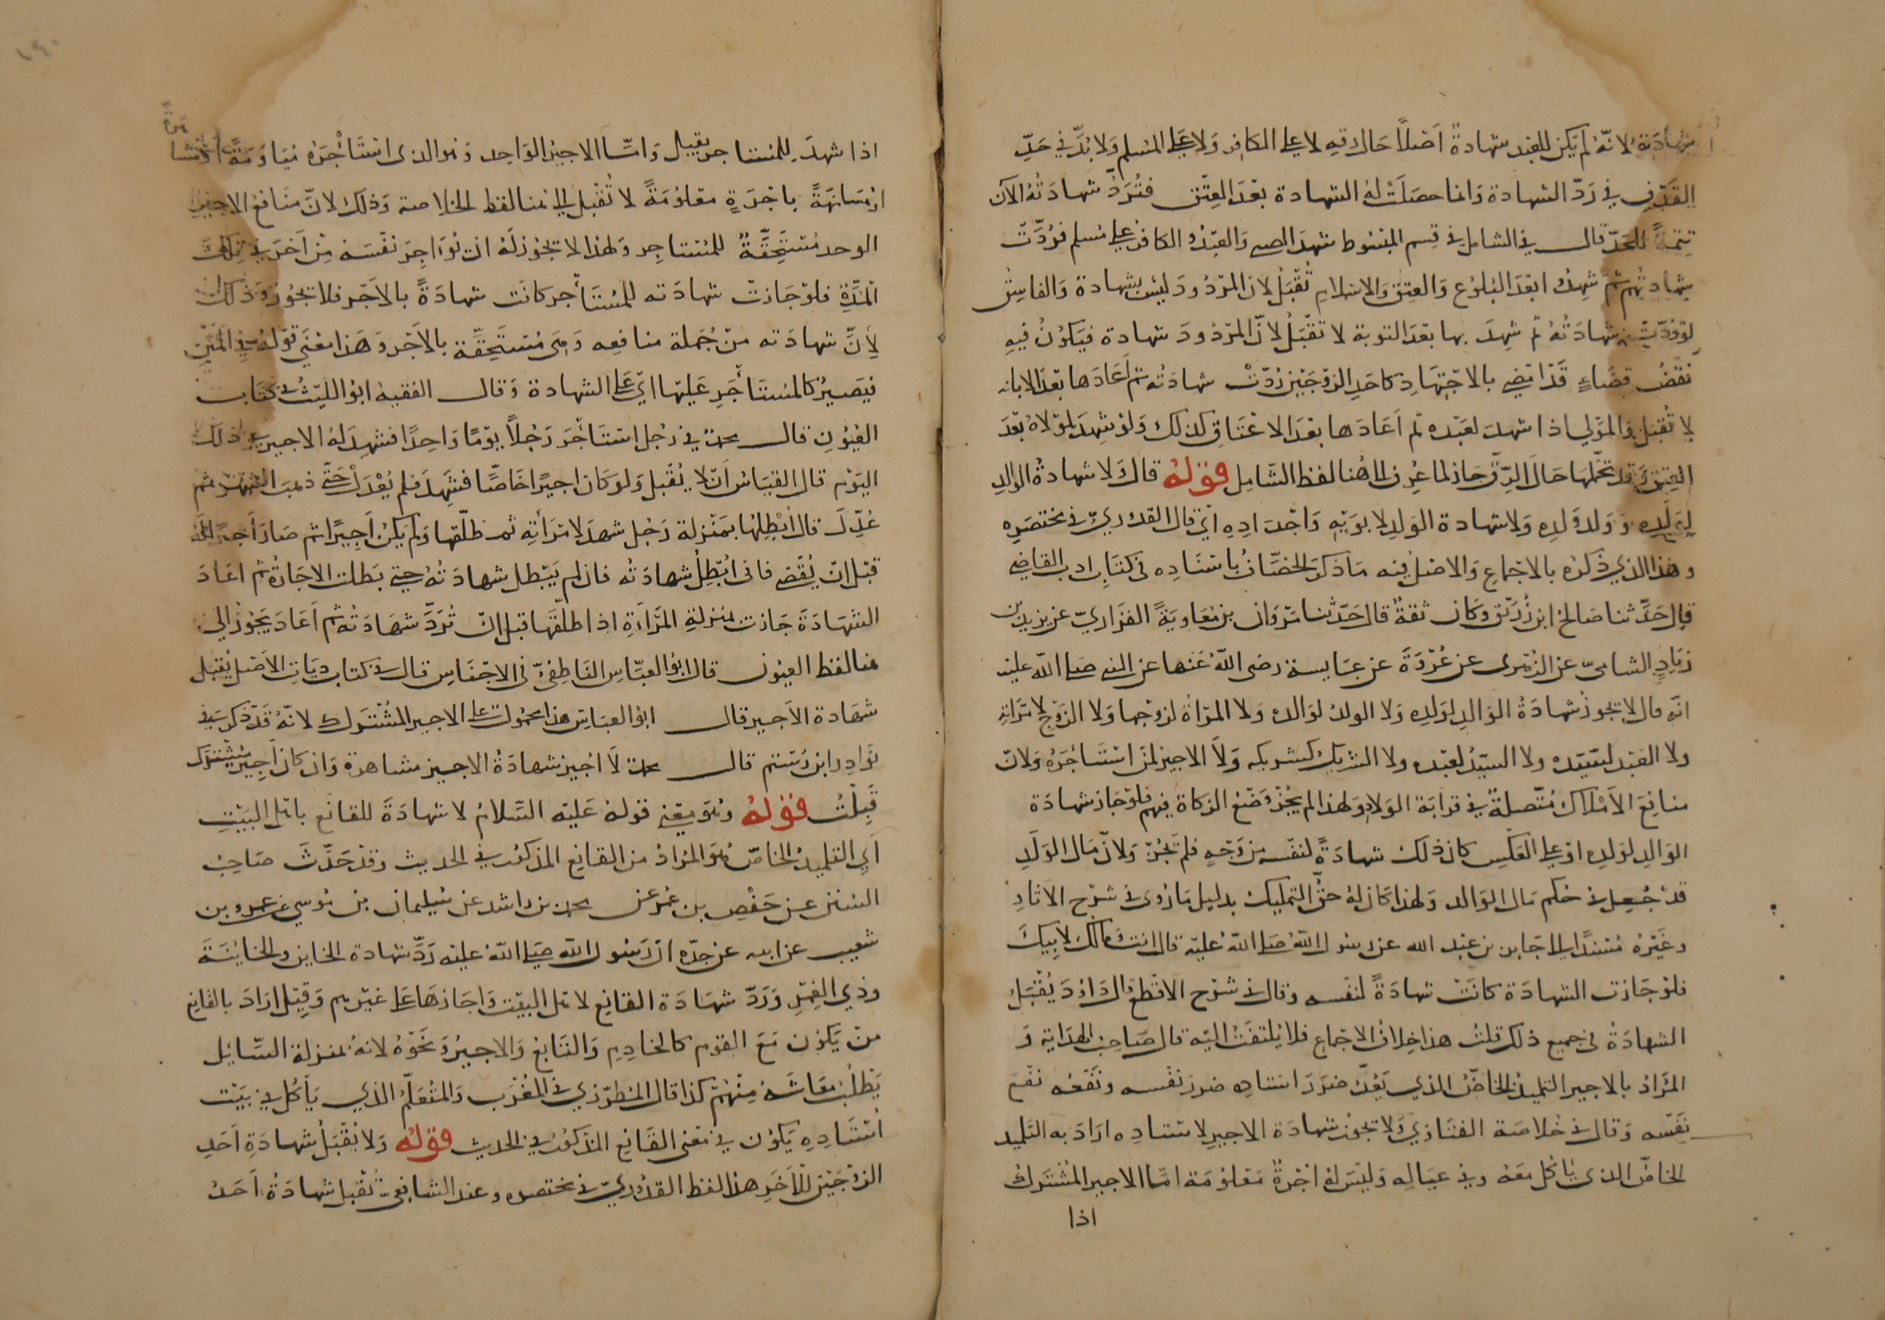 شهادته لانه لم يكن للعبد شهادة أصلا حال رقه لا على الكافر ولا على المسلم ولا بد في حد
القذف في رد الشهادة وانما حصلت له الشهادة بعد العتق فترد شهادته الآن
تتمة للحد قال في الشامل في قسم المبسوط شهد الصبي والعبد والكافر على مسلم فردت
شهادتهم ثم شهدوا بعد البلوغ والعتق والاسلام تقبل لان المردود ليس بشهادة والفاسق
لو ردت شهادته ثم شهد بها بعد التوبة لا تقبل لان المردود شهادة فيكون فيه
نقض قضاء قد امضي بالاجتهاد كاحد الزوجين ردت شهادته ثم أعادها بعد الابانة
لا تقبل والمولى اذا شهد لعبده ثم اعادها بعد الاعتاق كذلك ولو شهد لمولاه بعد
العتق وقد تحملها حال الرق جاز لما عرف الى هنا لفظ الشامل قوله قال ولا شهادة الوالد
لولده وولد ولده ولا شهادة الولد لابويه واجداده اي قال القدوري في مختصره
وهذا الذي ذكره بالاجماع والاصل فيه ما ذكر الخصاف باسناده في كتاب ادب القاضي
قال حدثنا صالح ابن زريق وكان ثقة قال حدثنا مروان بن معاوية الفزاري عن يزيد بن
زياد الشامي عن الزهرى عن عروة عن عايشة رضى الله عنها عن النبي صلى الله عليه
انه قال لا تجوز شهادة الوالد لولده ولا الولد لوالده ولا المرأة لزوجها ولا الزوج لامرأته
ولا العبد لسيده ولا السيد لعبده ولا الشريك لشريكه ولا الاجير لمن استأجره ولان
منافع الاملاك متصلة في قرابة الولاد ولهذا لم يجز وضع الزكاة فيهم فلو جاز شهادة
الوالد لولده او على العكس كان ذلك شهادة لنفسه من وجه فلم تجز ولان مال الولد
قد جعل في حكم مال الوالد ولهذا كان له حق التمليك بدليل ما روى في شرح الاثار
وغيره مسندا الى جابر بن عبد الله عن رسول الله صلى الله عليه قال انت ومالك لابيك
فلو جازت الشهادة كانت شهادة لنفسه وقال في شرح الاقطع قال داؤد يقبل
الشهادة في جميع ذلك قلت هذا خلاف الاجماع فلا يلتفت اليه قال صاحب الهداية و
المراد بالاجير التلميذ الخاص الذي يعد ضرر استاذه ضرر نفسه ونفعه نفع
نفسه وقال في خلاصة الفتاوي ولا تجوز شهادة الاجير لاستاذه اراد به التلميذ
الخاص الذي يأكل معه وفي عياله وليس له اجرة معلومة اما الاجير المشترك
اذا
اذا شهد للمستاجر يقبل واما الاجير الواحد وهو الذى استأجره مياومة او مشاهرة
او مسانهة باجرة معلومة لا تقبل الى هنا لفظ الخلاصة وذلك لان منافع الاجير
الوحد مستحقة للمستاجر ولهذا لا تجوز له ان يؤاجر نفسه من آخر في تلك
المدة فلو جازت شهادته للمستأجر كانت شهادة بالاجر فلا تجوز وذلك
لأن شهادته من جملة منافعه وهى مستحقة بالاجر وهذا معنى قوله في المتن
فيصير كالمستأجر عليها اي على الشهادة وقال الفقيه ابو الليث في كتاب
العيون قال محمد في رجل استأجر رجلا يوما واحدا فشهد له الاجير في ذلك
اليوم قال القياس ان لا يقبل ولو كان اجيرا خاصا فشهد فلم يعدل حتى ذهب الشهر ثم
عدل قال ابطلها بمنزلة رجل شهد لامرأته ثم طلقها ولم يكن اجيرا ثم صار أجيرا له
قبل ان يقضى فانى ابطل شهادته فان لم يبطل شهادته حتى بطلت الاجارة ثم اعاد
الشهادة جازت بمنزلة المرأة اذا طلقها قبل ان ترد شهادته ثم أعاد يجوز الى
هنا لفظ العيون قال ابو العباس الناطفي في الاجناس قال في كتاب ديات الاصل يقبل
شهادة الاجير قال ابو العباس هذا محمول على الاجير المشترك لانه قد ذكر في
نوادر ابن رستم قال محمد لا اجيز شهادة الاجير مشاهرة وان كان أجير مشترك
قبلت قوله وهو معنى قوله عليه السلام لا شهادة للقانع باهل البيت
أي التلميذ الخاص هو المراد من القانع المذكور في الحديث وقد حدث صاحب
السنن عن حفص بن عمر عن محمد بن راشد عن سليمان بن موسى عن عمرو بن
شعيب عن ابيه عن جده ان رسول الله صلى الله عليه رد شهادة الخاين والخاينة
وذي الغمر ورد شهادة القانع لاهل البيت واجازها على غيرهم وقيل اراد بالقانع
من يكون مع القوم كالخادم والتابع والاجير ونحوه لانه بمنزلة السايل
يطلب معاشه منهم كذا قال المطرزي في المغرب والمتعلم الذي يأكل في بيت
استاذه يكون في معنى القانع المذكور في الحديث قوله ولا تقبل شهادة احد
الزوجين للآخر هذا لفظ القدوري في مختصره وعند الشافعي تقبل شهادة أحد